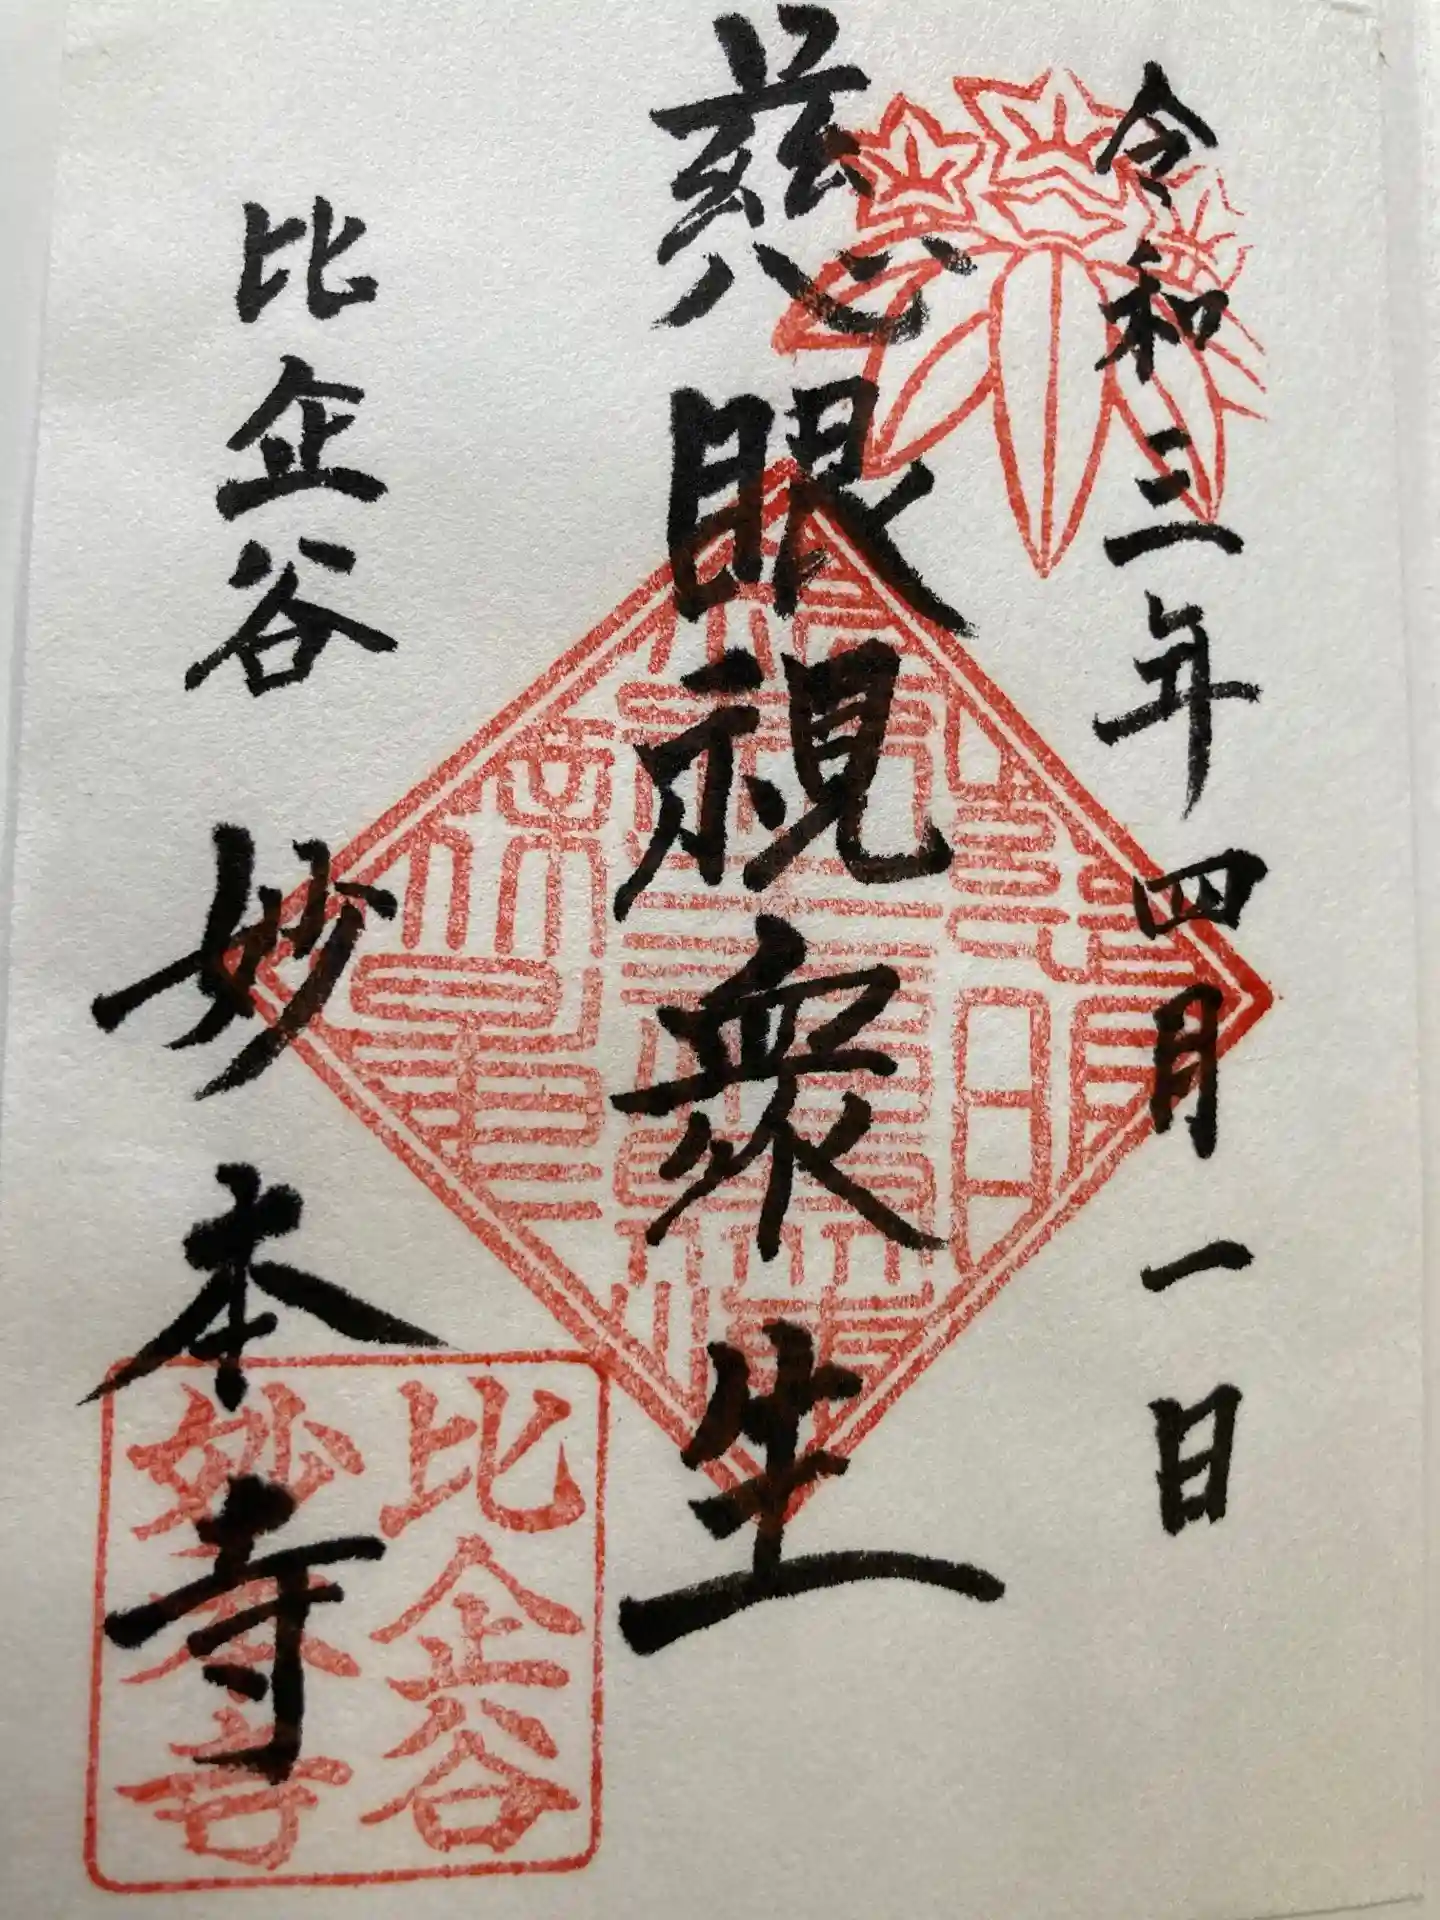 令和三年四月一日
慈眼視衆生
比企谷 妙本寺
比企谷